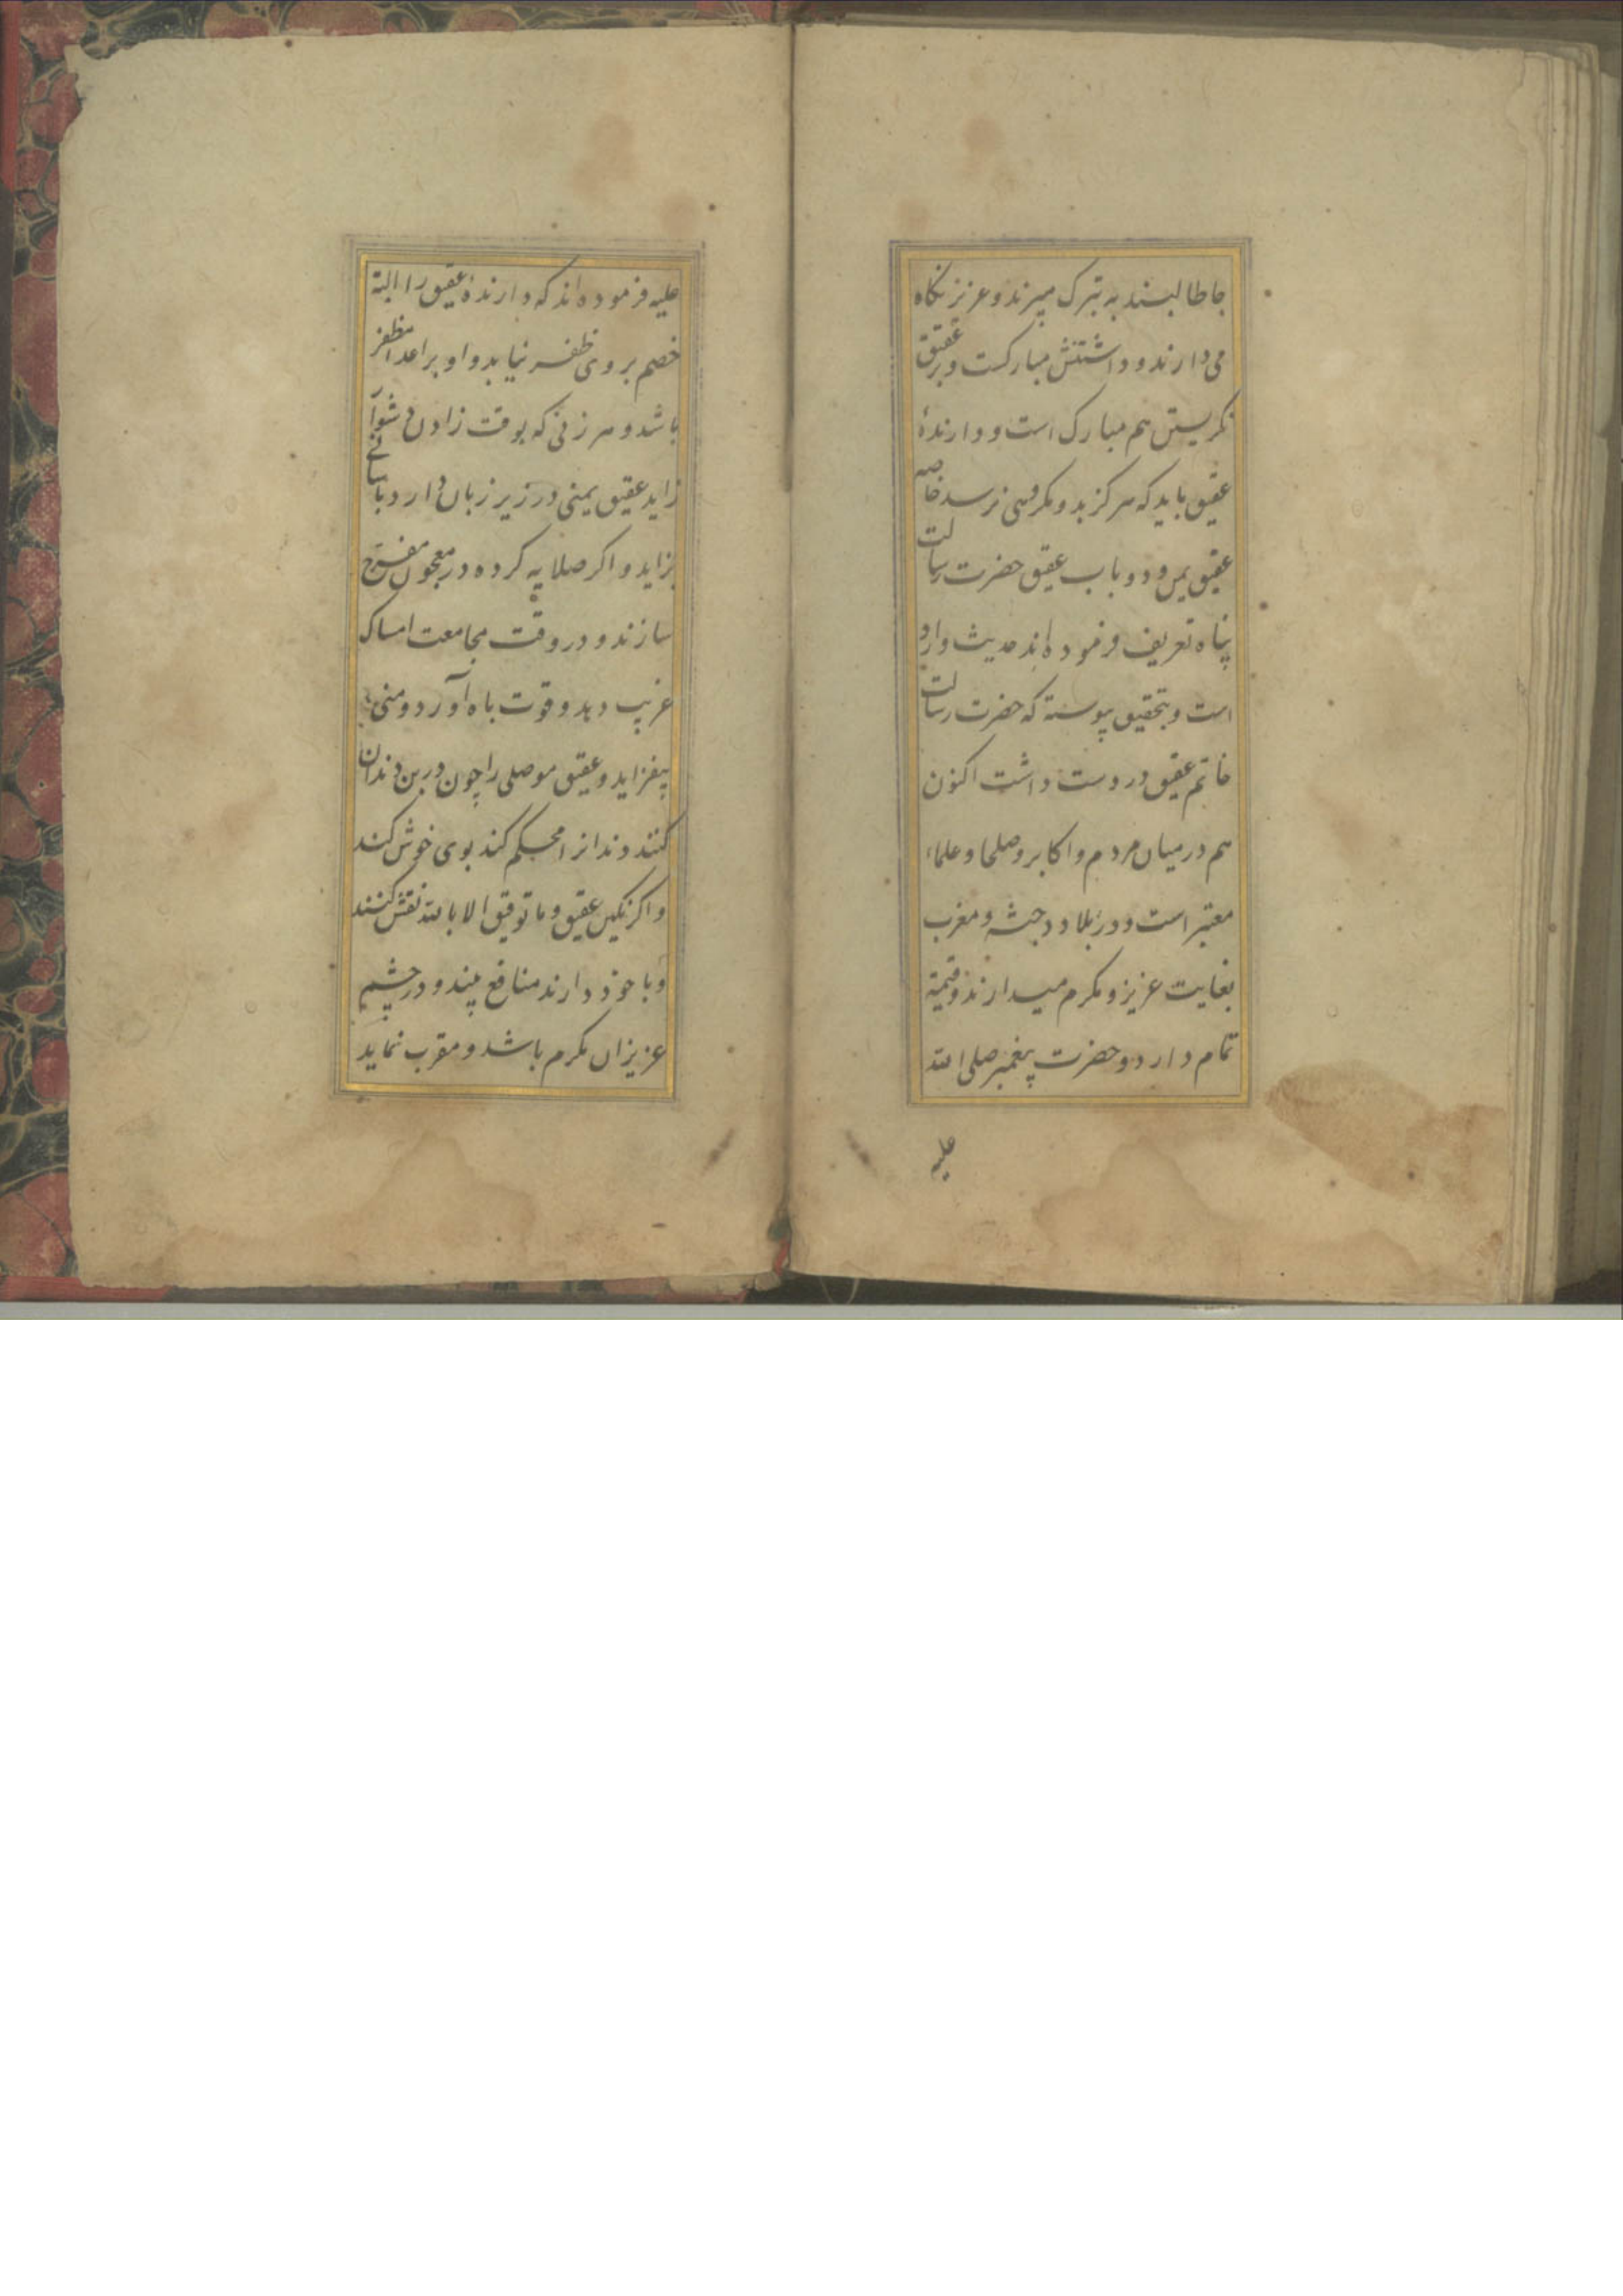 جا طالبند به تبرک میبرند و عزیز نکاه
می دارند و داشتنش مبارکست و بر عقیق
نکریستن هم مبارک است و دارندهٔ
عقیق باید که هرکز بد و مکروهی نرسد خاصه
عقیق یمن و در باب عقیق حضرت رسالت
پناه تعریف فرموده اند حدیث وارد
است و بتحقیق پیوسته که حضرت رسالت
خاتم عقیق در دست داشت اکنون
هم در میان مردم و اکابر و صلحا و علماء
معتبر است و در بلاد و حبشه و مغرب
بغایت عزیز و مکرم میدارند و قیمة
تمام دارد و حضرت پیغمبر صلی الله
علیه
علیه فرموده اند که دارندهٔ عقیق را البتة
خصم بر وی ظفر نیابد و او بر اعدا مظفر
باشد و هر زنی که بوقت زادن دشوار
زاید عقیق یمنی در زیر زبان دارد بآسانی
بزاید و اکر صلایه کرده در معجون مفرح
سازند و در وقت مجامعت امساک
غریب دهد و قوت باه آورد و منی
بیفزاید و عقیق موصلی را چون در بن دندان
کنند دندانرا محکم کند بوی خوش کند
و اکر نکین عقیق و ما توفیق الا بالله نقش کنند
و با خود دارند منافع بیند و در چشم
عزیزان مکرم باشد و مقرب نماید